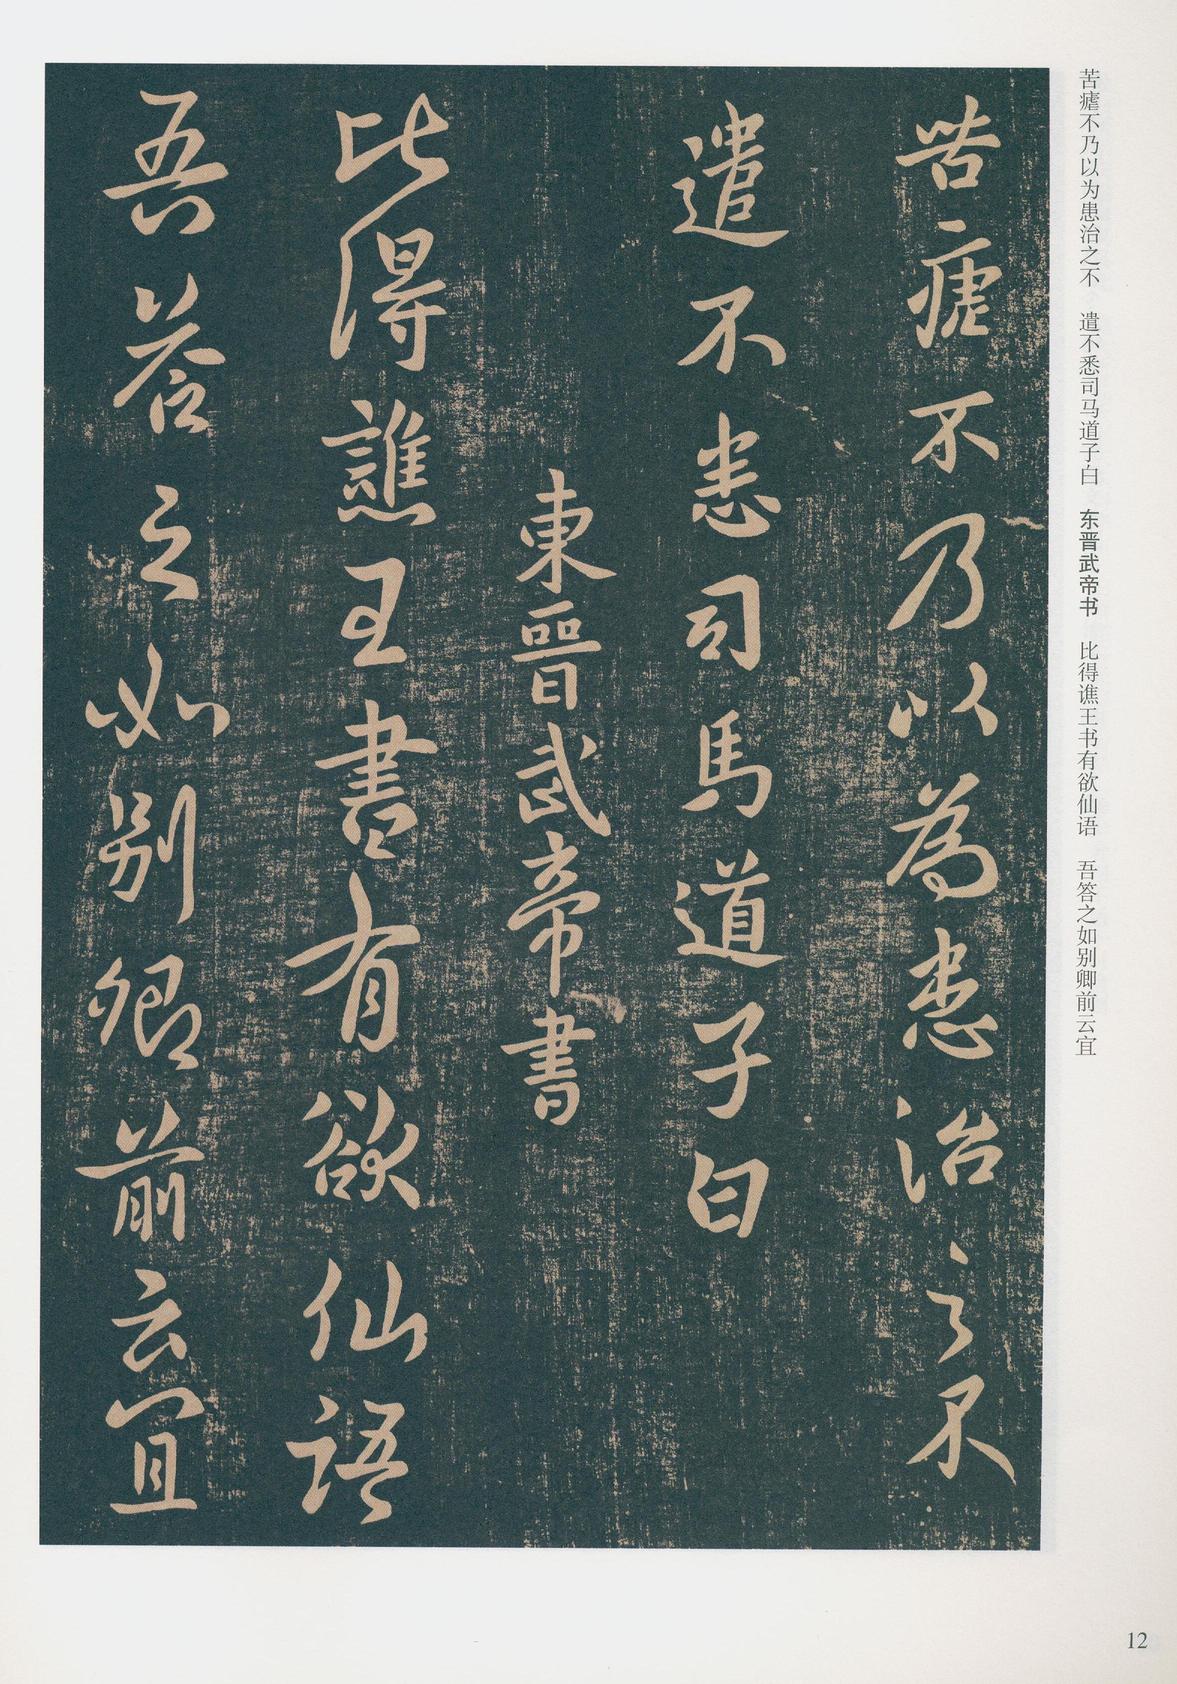 苦瘧不乃以为患治之不　遣不悉司马道子白　东晋武帝书　比得谯王书有欲仙语　吾答之如别卿前云宜
苦瘧不乃以為患治之不
遣不悉司馬道子白
東晉武帝書
比得譙王書有欲仙語
吾答之如別卿前云宜
12